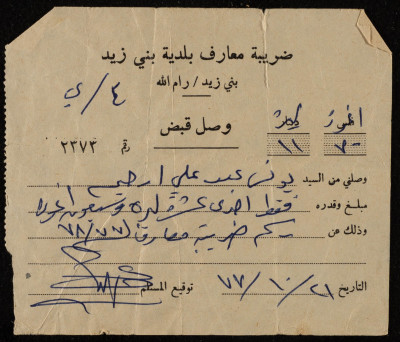 ضريبة معارف بلدية بني زيد
بني زيد / رام الله
٤ / ي
وصل قبض
رقم ٢٣٧٣
٧٠ ١١
وصلني من السيد يونس عبد علي ارحيم
مبلغ وقدره فقط احدى عشر ليره وسبعون اغوره
وذلك عن ضريبة معارف ٧٨/٧٧
التاريخ ٢١ / ١٠ / ٧٧ توقيع المستلم